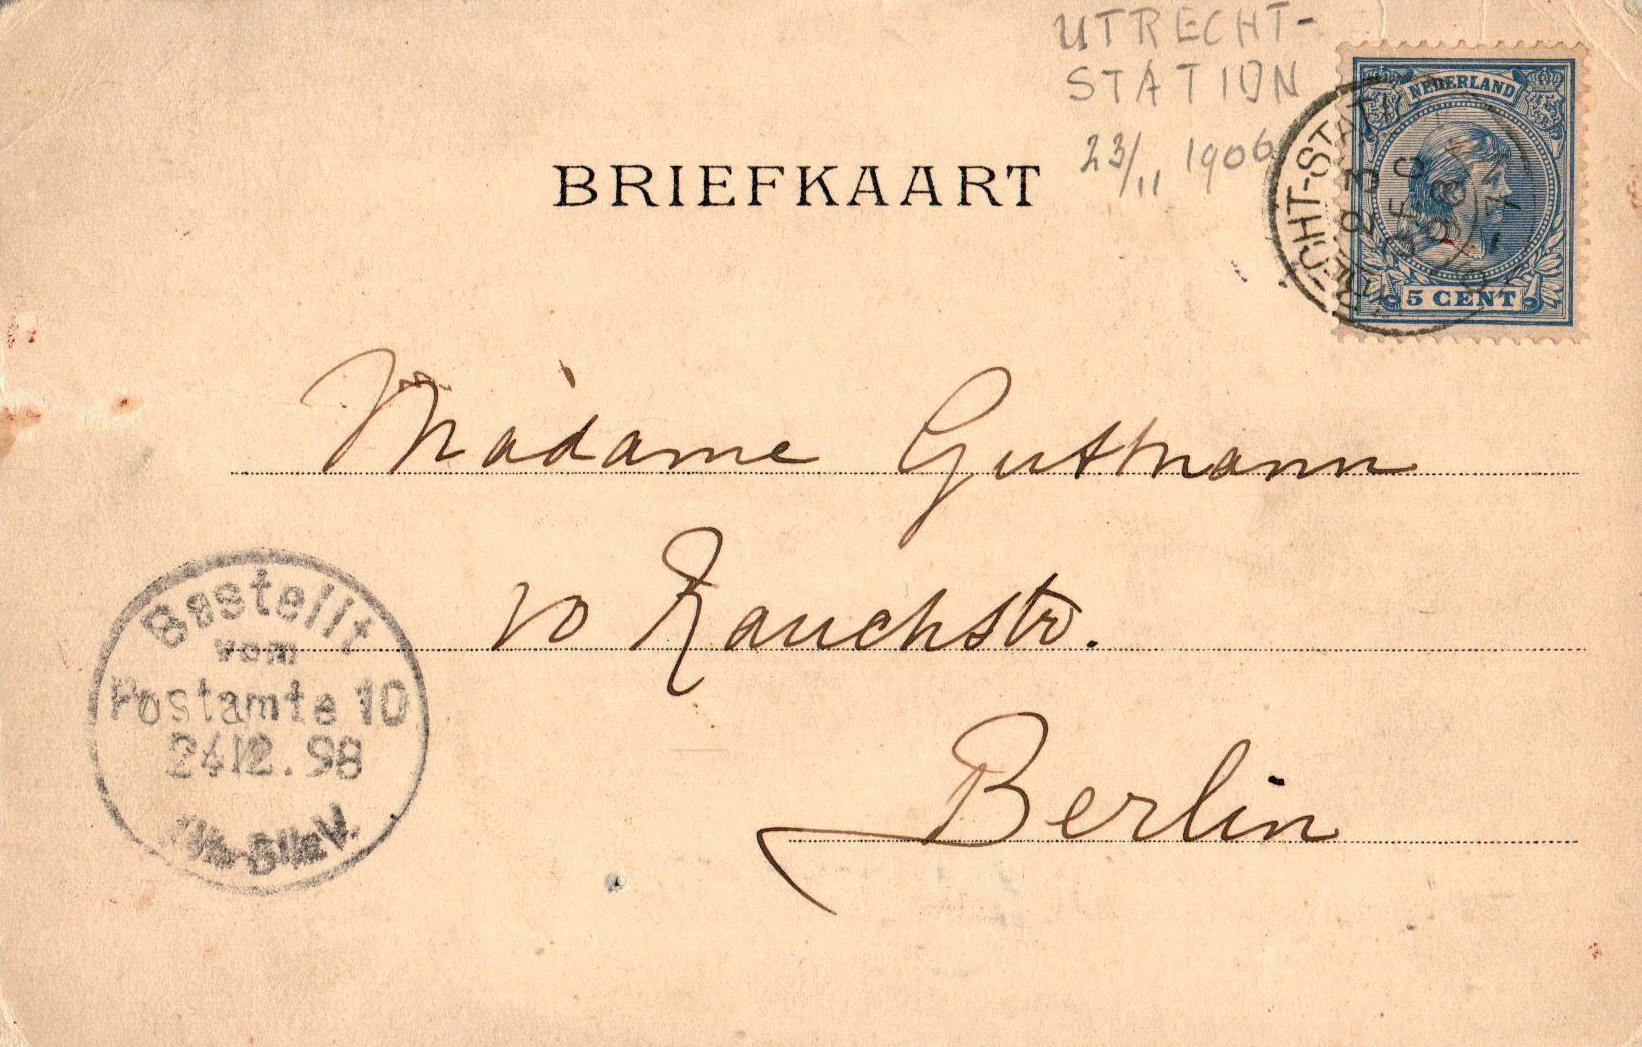 UTRECHT-
STATION
23/11 1906
BRIEFKAART
NEDERLAND
5 CENT
CHT-STATI
Madame Gutmann
10 Rauchstr.
Berlin
Bestellt
vom
Postamte 10
24 12.98